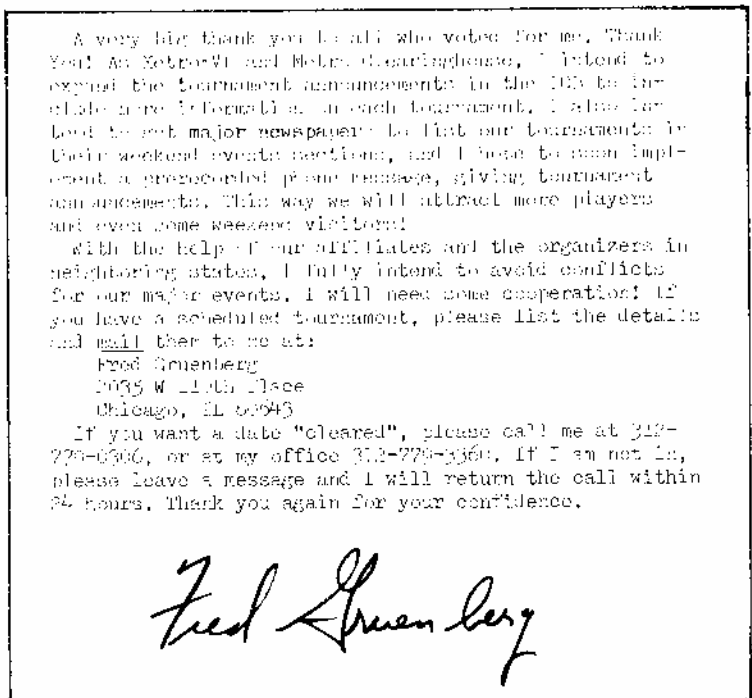 A very big thank you to all who voted for me. Thank
You! As Metro-VP and Metro Clearinghouse, I intend to
expand the tournament announcements in the ICB to in-
clude more information on each tournament. I also in-
tend to get major newspapers to list our tournaments in
their weekend events sections, and I hope to soon impl-
ement a prerecorded phone message, giving tournament
announcements. This way we will attract more players
and even some weekend visitors!
With the help of our affiliates and the organizers in
neighboring states, I fully intend to avoid conflicts
for our major events. I will need some cooperation! If
you have a scheduled tournament, please list the details
and mail them to me at:
Fred Gruenberg
2035 W Place
Chicago, IL 60643
If you want a date "cleared", please call me at 312-
779-0306, or at my office 312-779-3360. If I am not in,
please leave a message and I will return the call within
24 hours. Thank you again for your confidence.
Fred Gruenberg